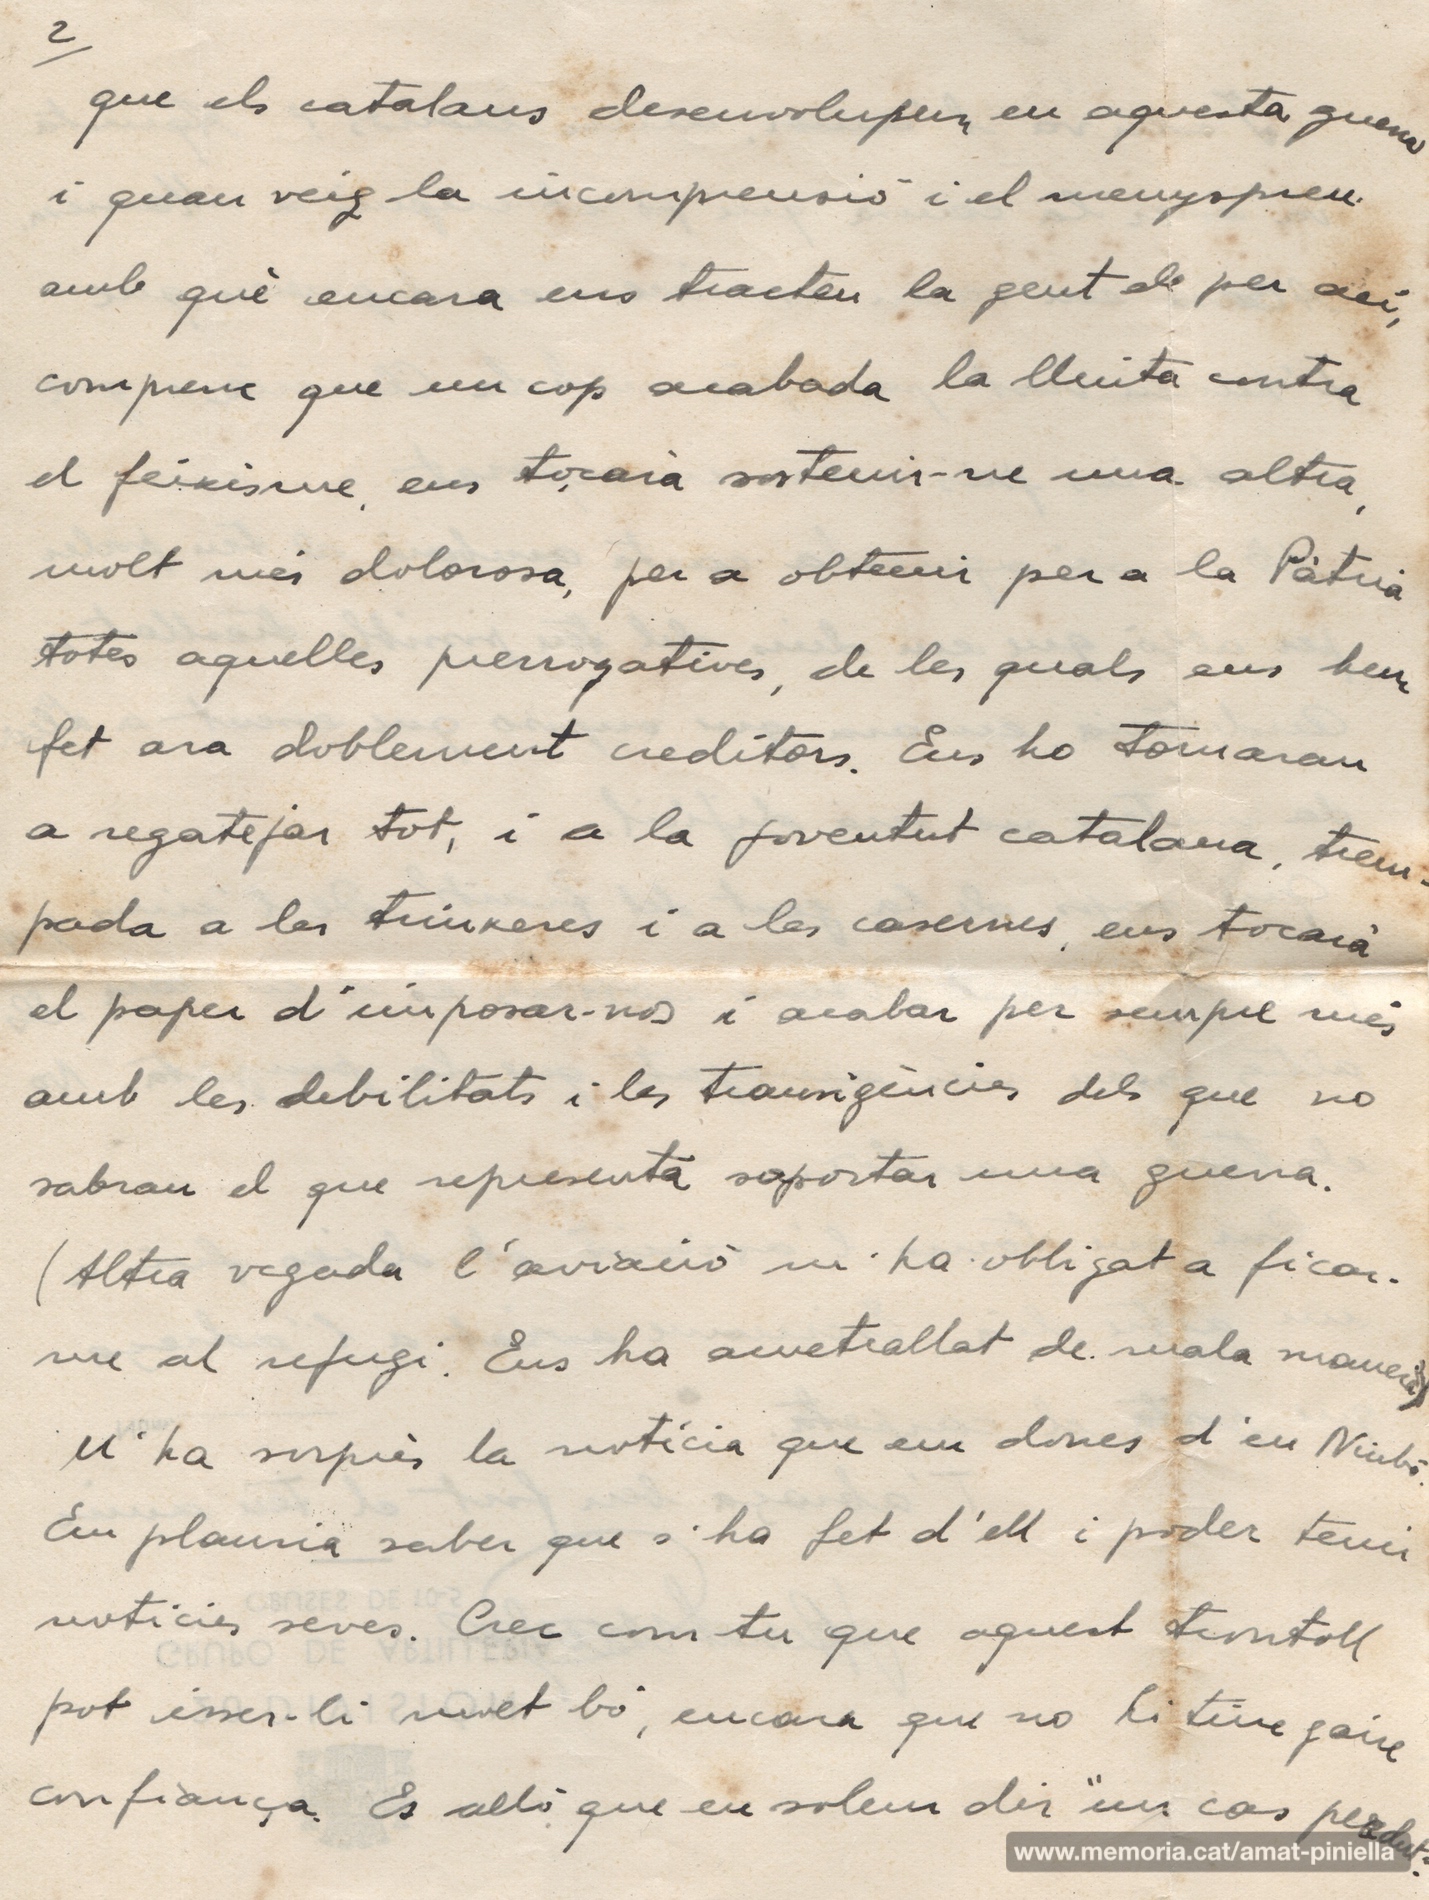 2
que els catalans desenvolupem en aquesta guerra
i quan veig la incomprensió i el menyspreu
amb què encara ens tracten la gent de per ací,
comprenc que un cop acabada la lluita contra
el feixisme, ens tocarà sostenir-ne una altra,
molt més dolorosa, per a obtenir per a la Pàtria
totes aquelles prerrogatives, de les quals ens hem
fet ara doblement creditors. Ens ho tornaran
a regatejar tot, i a la joventut catalana, trem-
pada a les trinxeres i a les casernes, ens tocarà
el paper d'imposar-nos i acabar per sempre més
amb les debilitats i les transigències dels que no
sabran el que representa soportar una guerra.
(Altra vegada l'aviació m'ha obligat a ficar-
me al refugi. Ens ha ametrallat de mala manera)
M'ha sorprès la notícia que em dones d'en Nimbó.
Em plauria saber que s'ha fet d'ell i poder tenir
noticies seves. Crec com tu que aquest trontoll
pot ésser-li molt bó, encara que no hi tinc gaire
confiança. Es allò que en solem dir "un cas perdut".
www.memoria.cat/amat-piniella